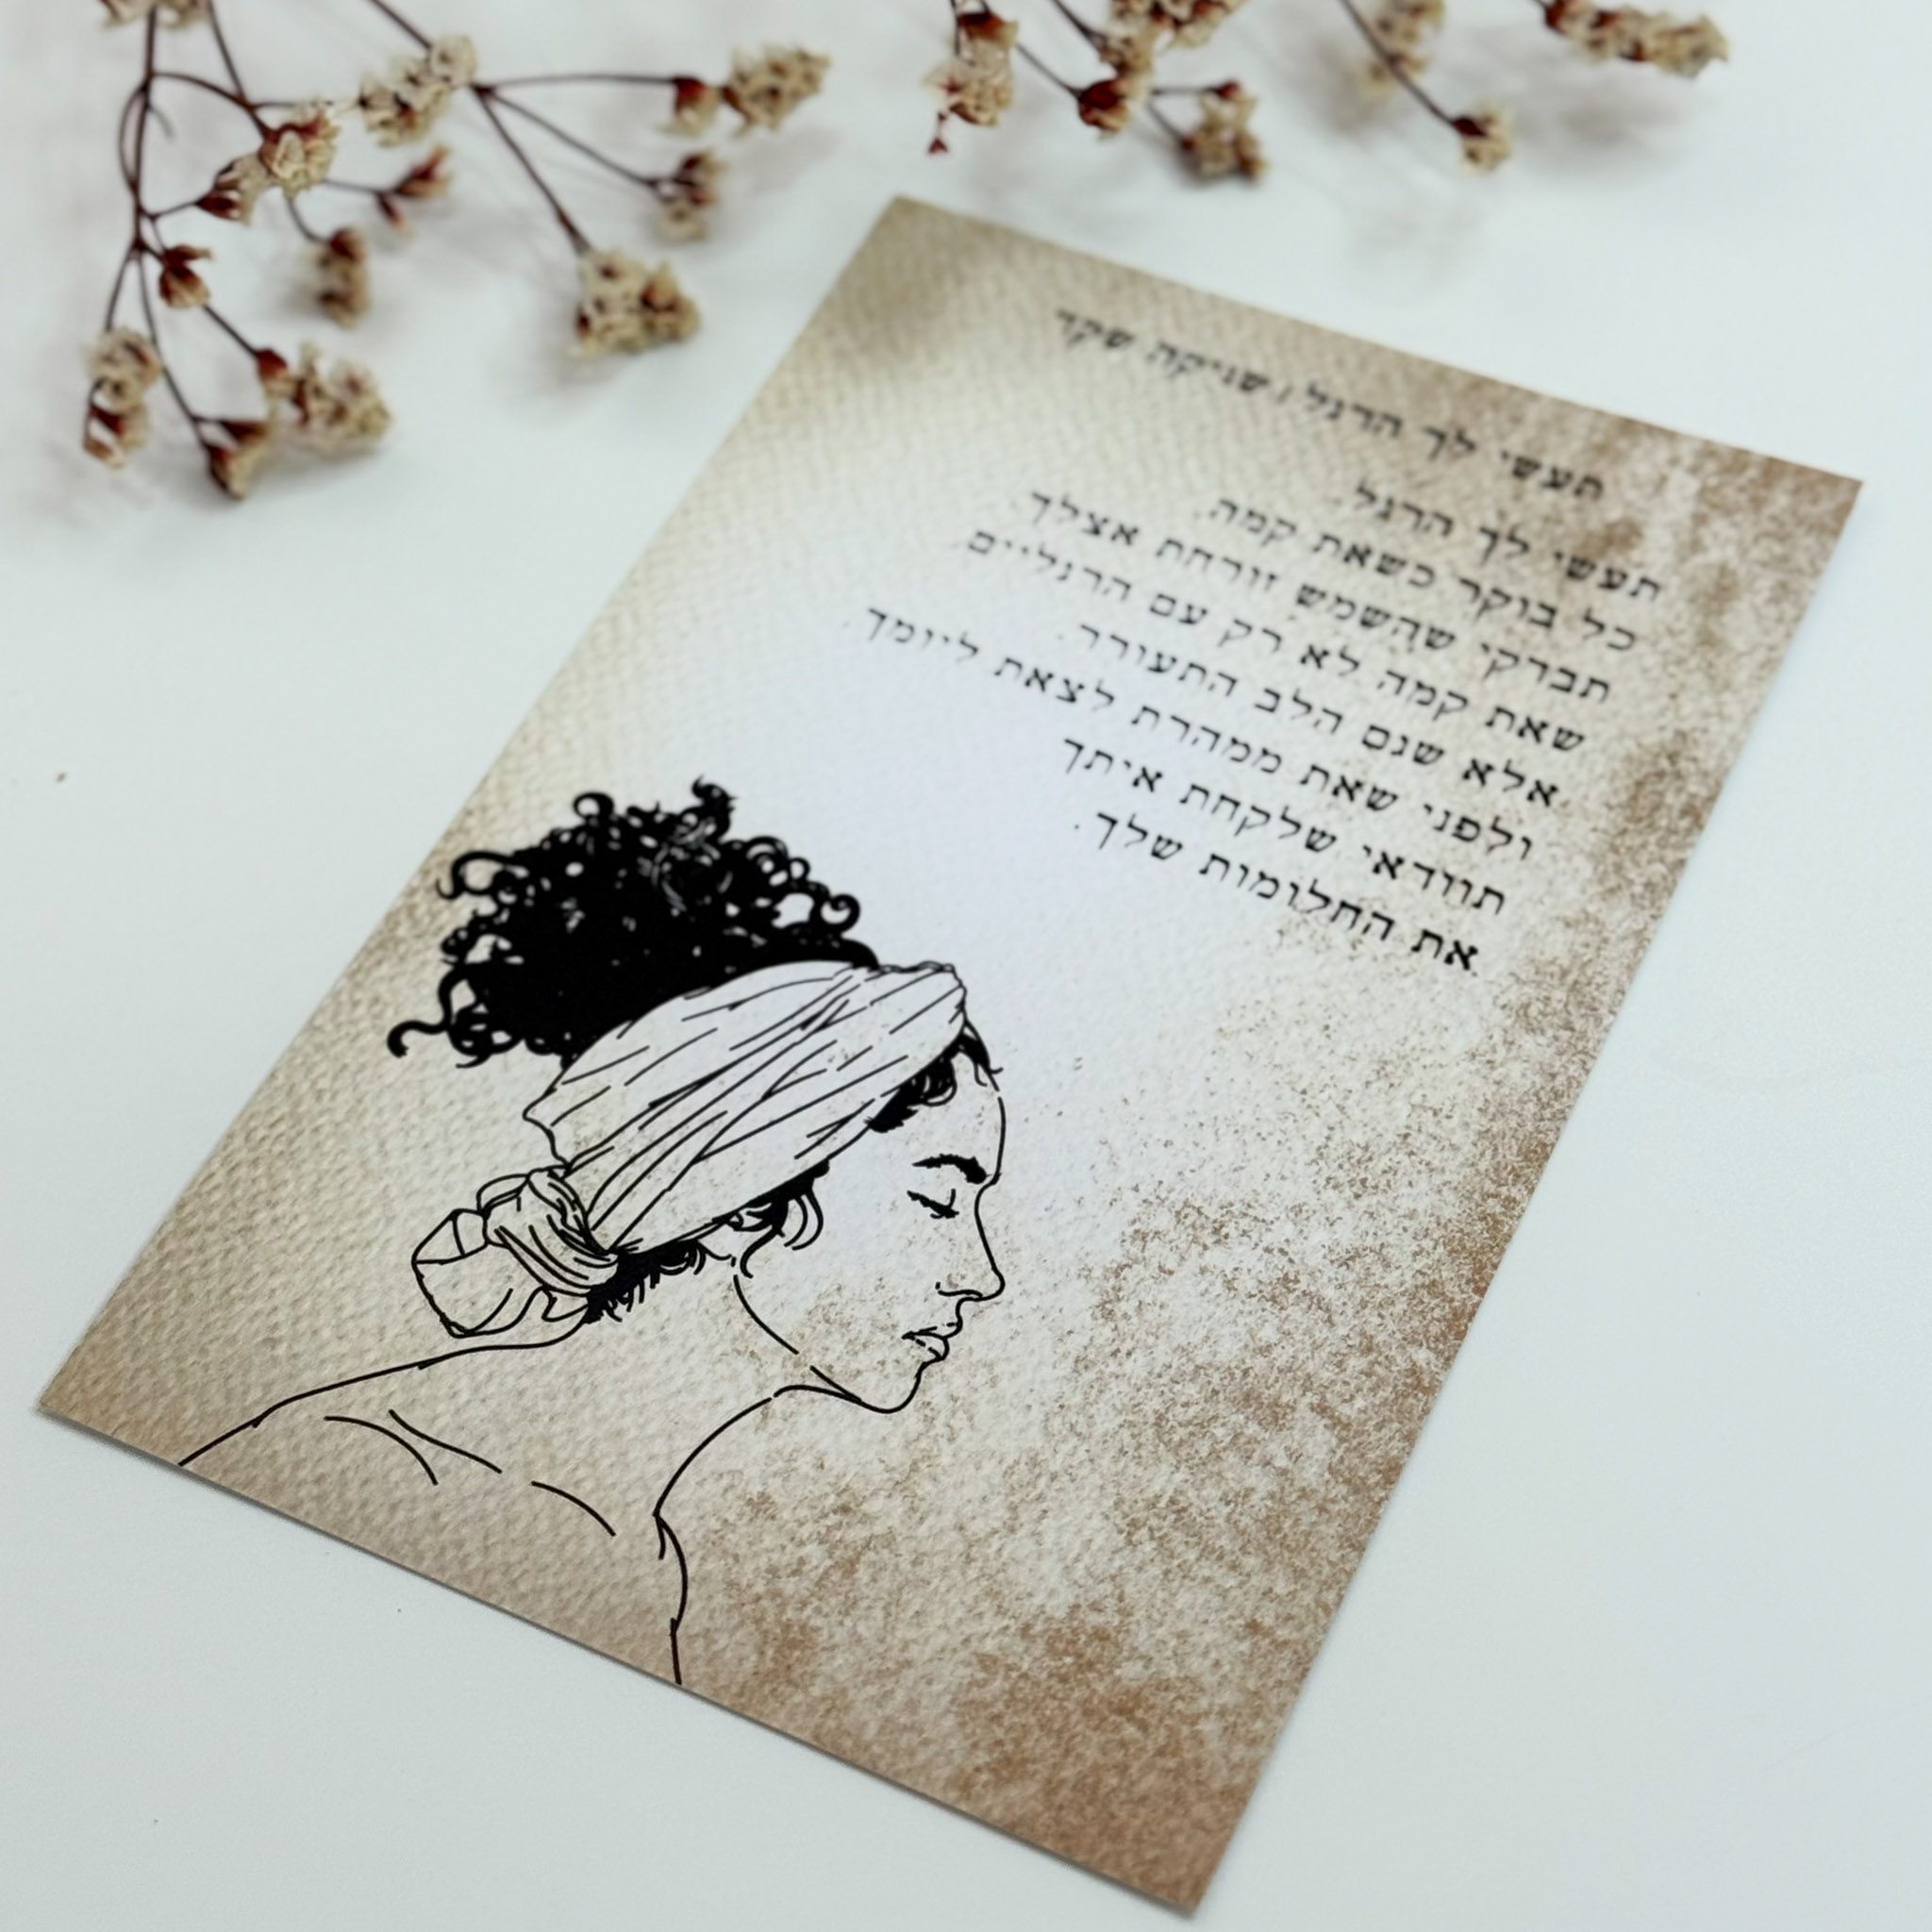 תעשי לך הרגל | שוייקה שקד
תעשי לך הרגל.
כל בוקר כשאת קמה,
תבדקי שהשמש זורחת אצלך.
שאת קמה לא רק עם הרגליים
אלא שגם הלב התעורר.
ולפני שאת ממהרת לצאת ליומך.
תוודאי שלקחת איתך
את החלומות שלך.